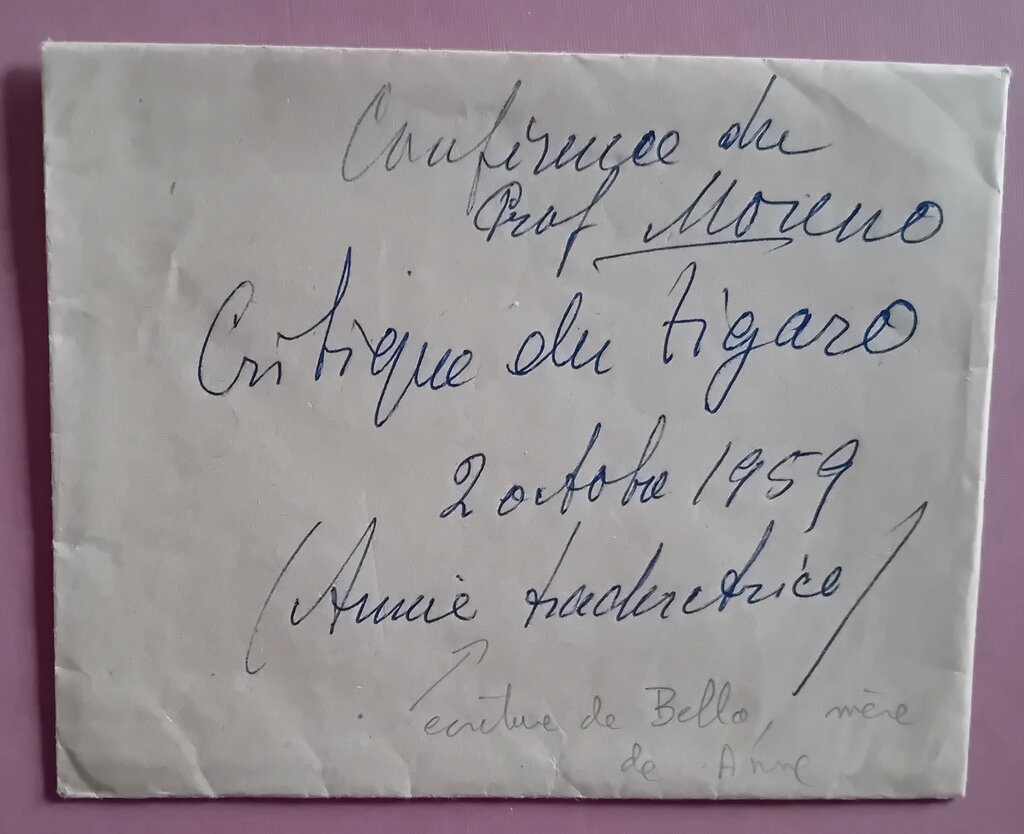 Conférence du
Prof Moreno
Critique du Figaro
2 octobre 1959
(Annie traductrice)
écriture de Bella, mère
de Anne